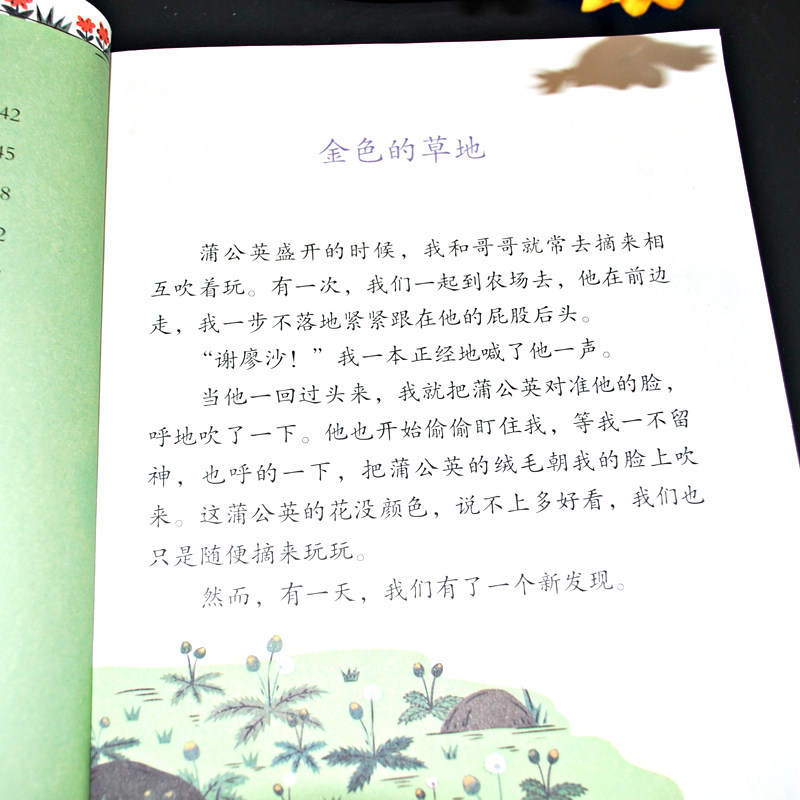 42
45
8
2
金色的草地
蒲公英盛开的时候，我和哥哥就常去摘来相
互吹着玩。有一次，我们一起到农场去，他在前边
走，我一步不落地紧紧跟在他的屁股后头。
“谢廖沙！”我一本正经地喊了他一声。
当他一回过头来，我就把蒲公英对准他的脸，
呼地吹了一下。他也开始偷偷盯住我，等我一不留
神，也呼的一下，把蒲公英的绒毛朝我的脸上吹
来。这蒲公英的花没颜色，说不上多好看，我们也
只是随便摘来玩玩。
然而，有一天，我们有了一个新发现。